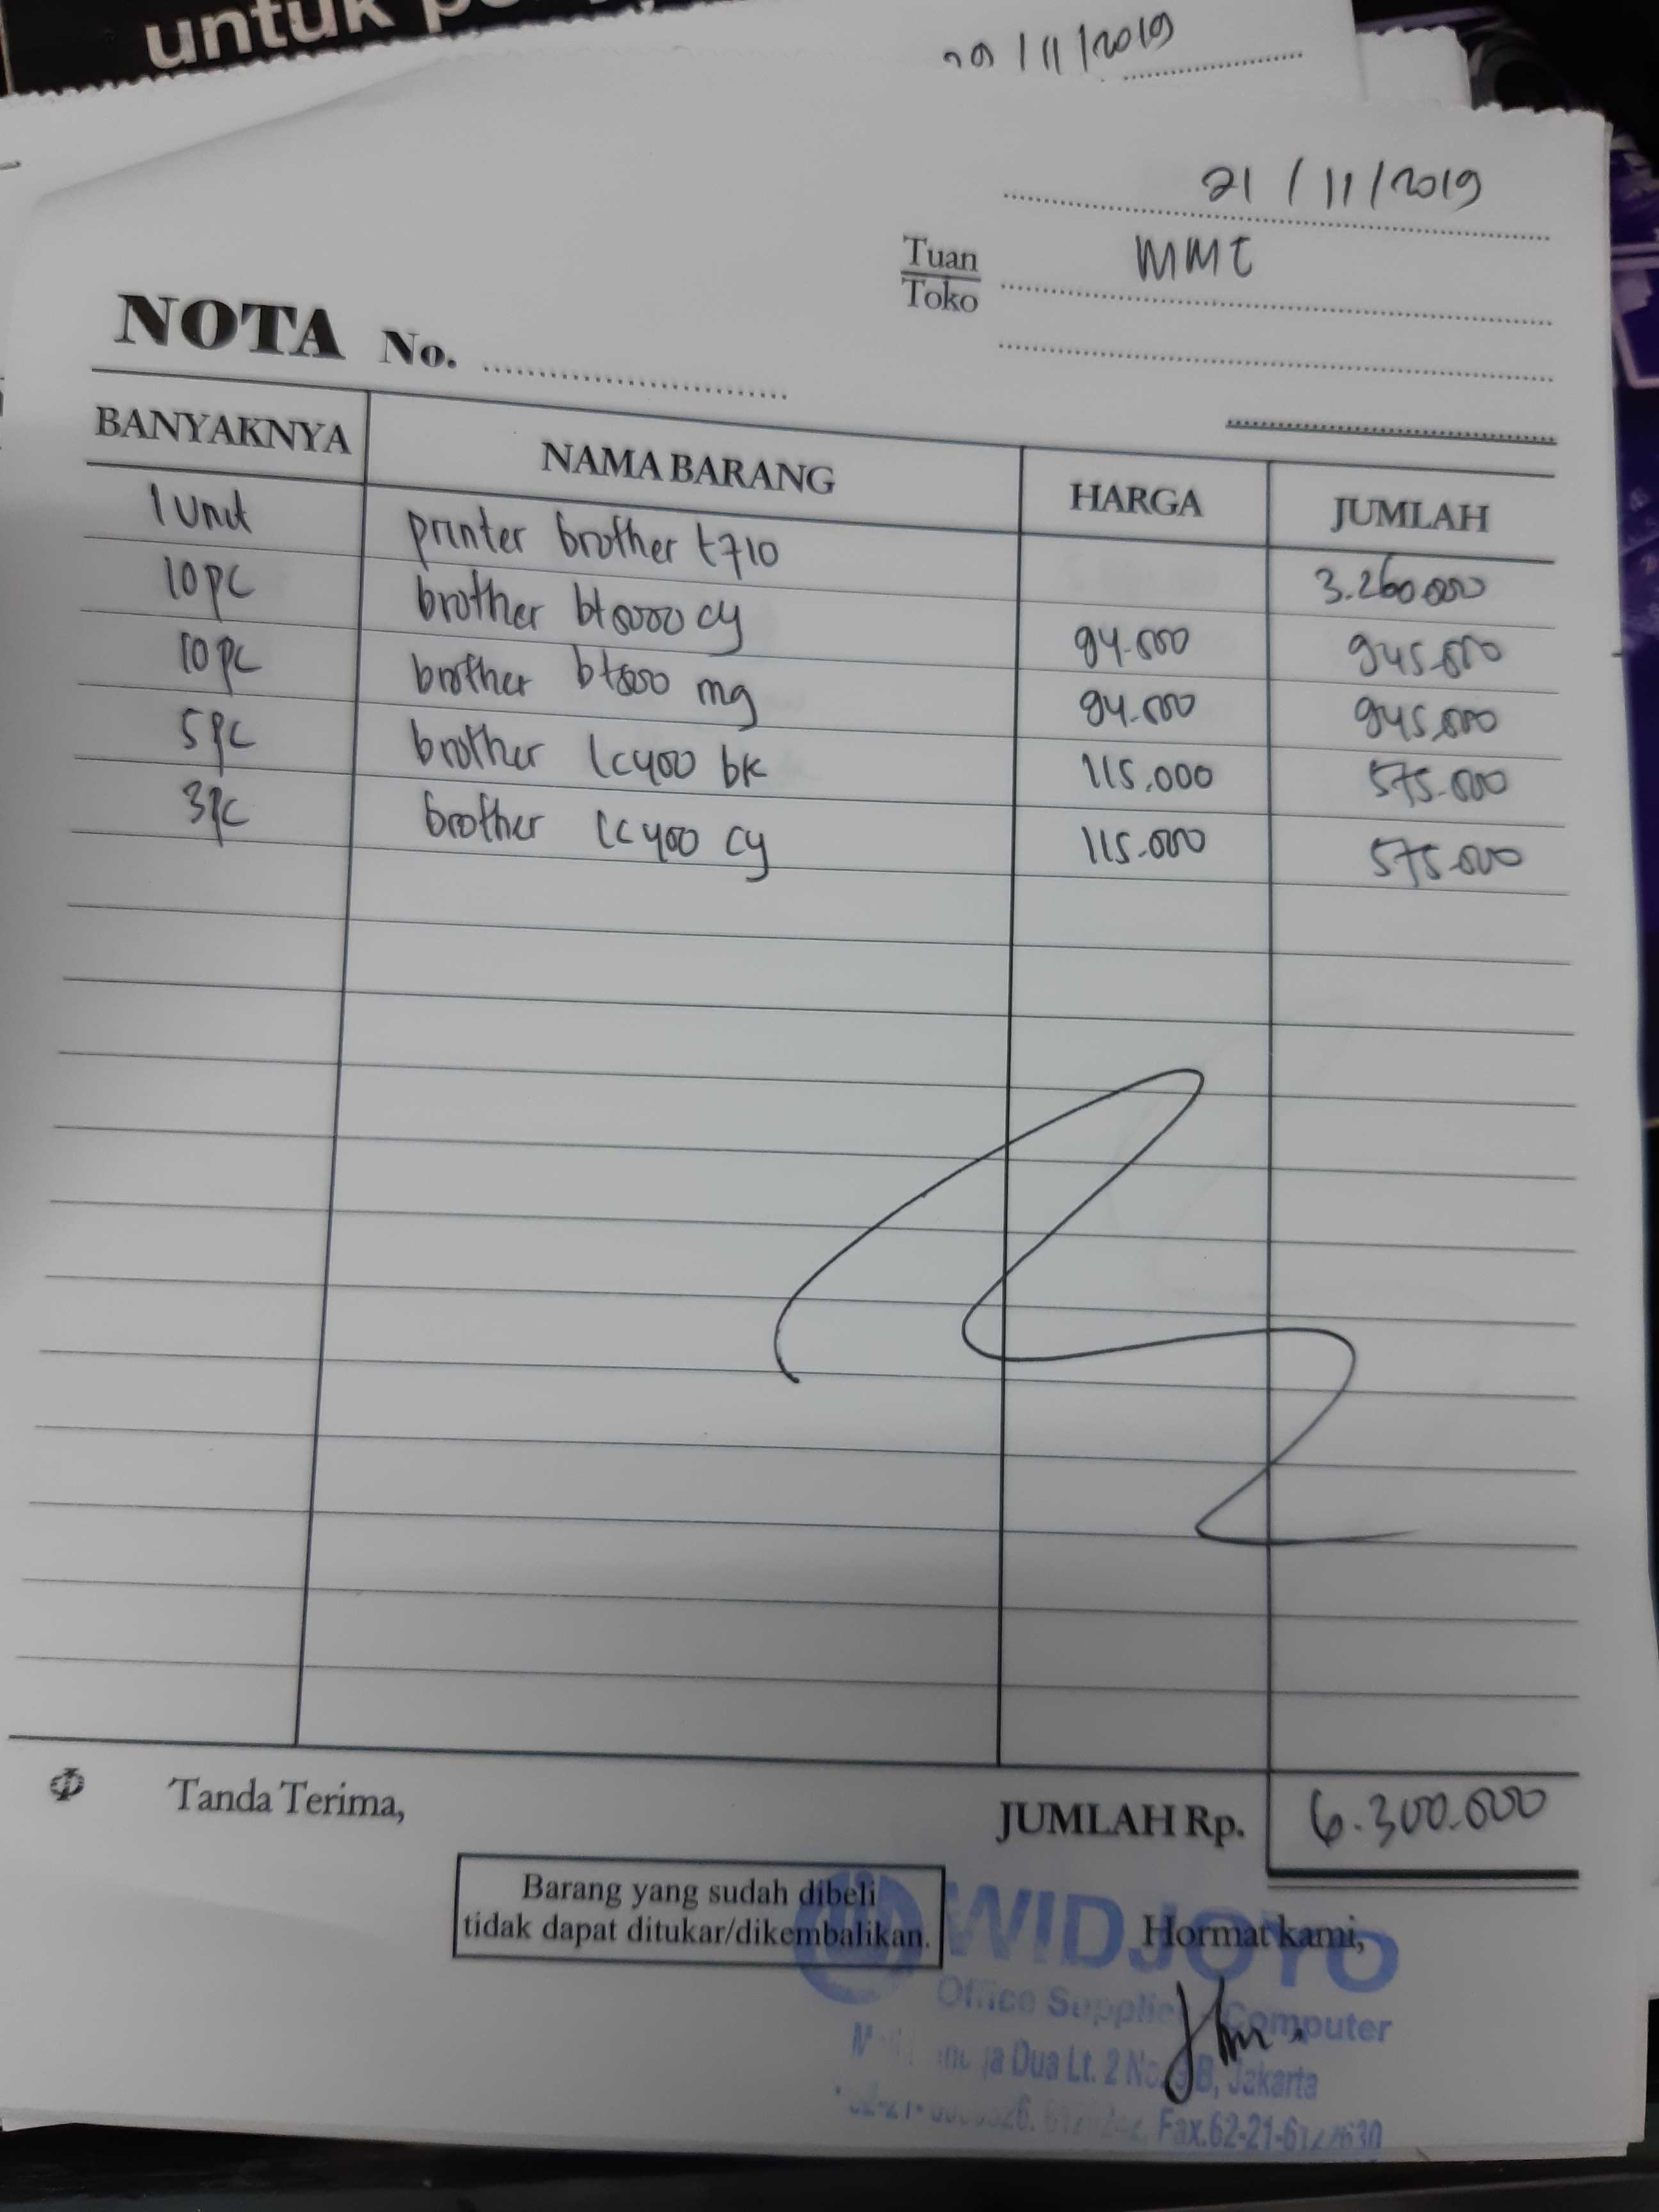 untuk
29/11/2019
21/11/2019
Tuan MMI
Toko
NOTA No.
BANYAKNYA NAMA BARANG HARGA JUMLAH
1 Unit printer brother t710 3.260.000
10 pc brother bt6000 cy 94.000 945.000
10 pc brother bt5000 mg 94.000 945.000
5 pc brother lc400 bk 115.000 575.000
3 pc brother lc400 cy 115.000 575.000
Tanda Terima, JUMLAH Rp. 6.300.000
Barang yang sudah dibeli
tidak dapat ditukar/dikembalikan.
Hormat kami,
WIDJOYO
Office Supplies Computer
Dua Lt. 2 No. B, Jakarta
Fax.62-21-